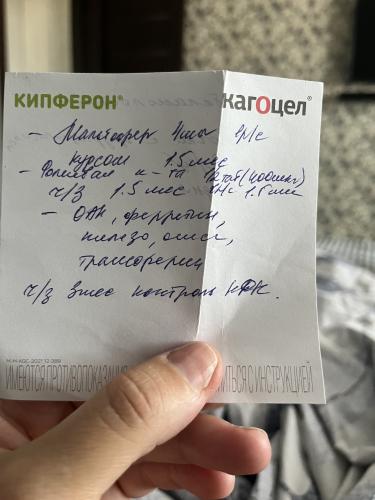 КИПФЕРОН® КАГОЦЕЛ®
- Мальтофер
курсом 1.5 мес
- Фолиевая к-та 1 таб (400мкг)
ч/з 1.5 мес 1.5 мес
- ОАК, ферритин,
железо, ожсс,
трансферрин
ч/з 3 мес контроль КФК.
ИМЕЮТСЯ ПРОТИВОПОКАЗАНИЯ ИТЬСЯ С ИНСТРУКЦИЕЙ